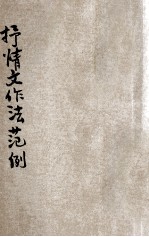 抒情文作法范例